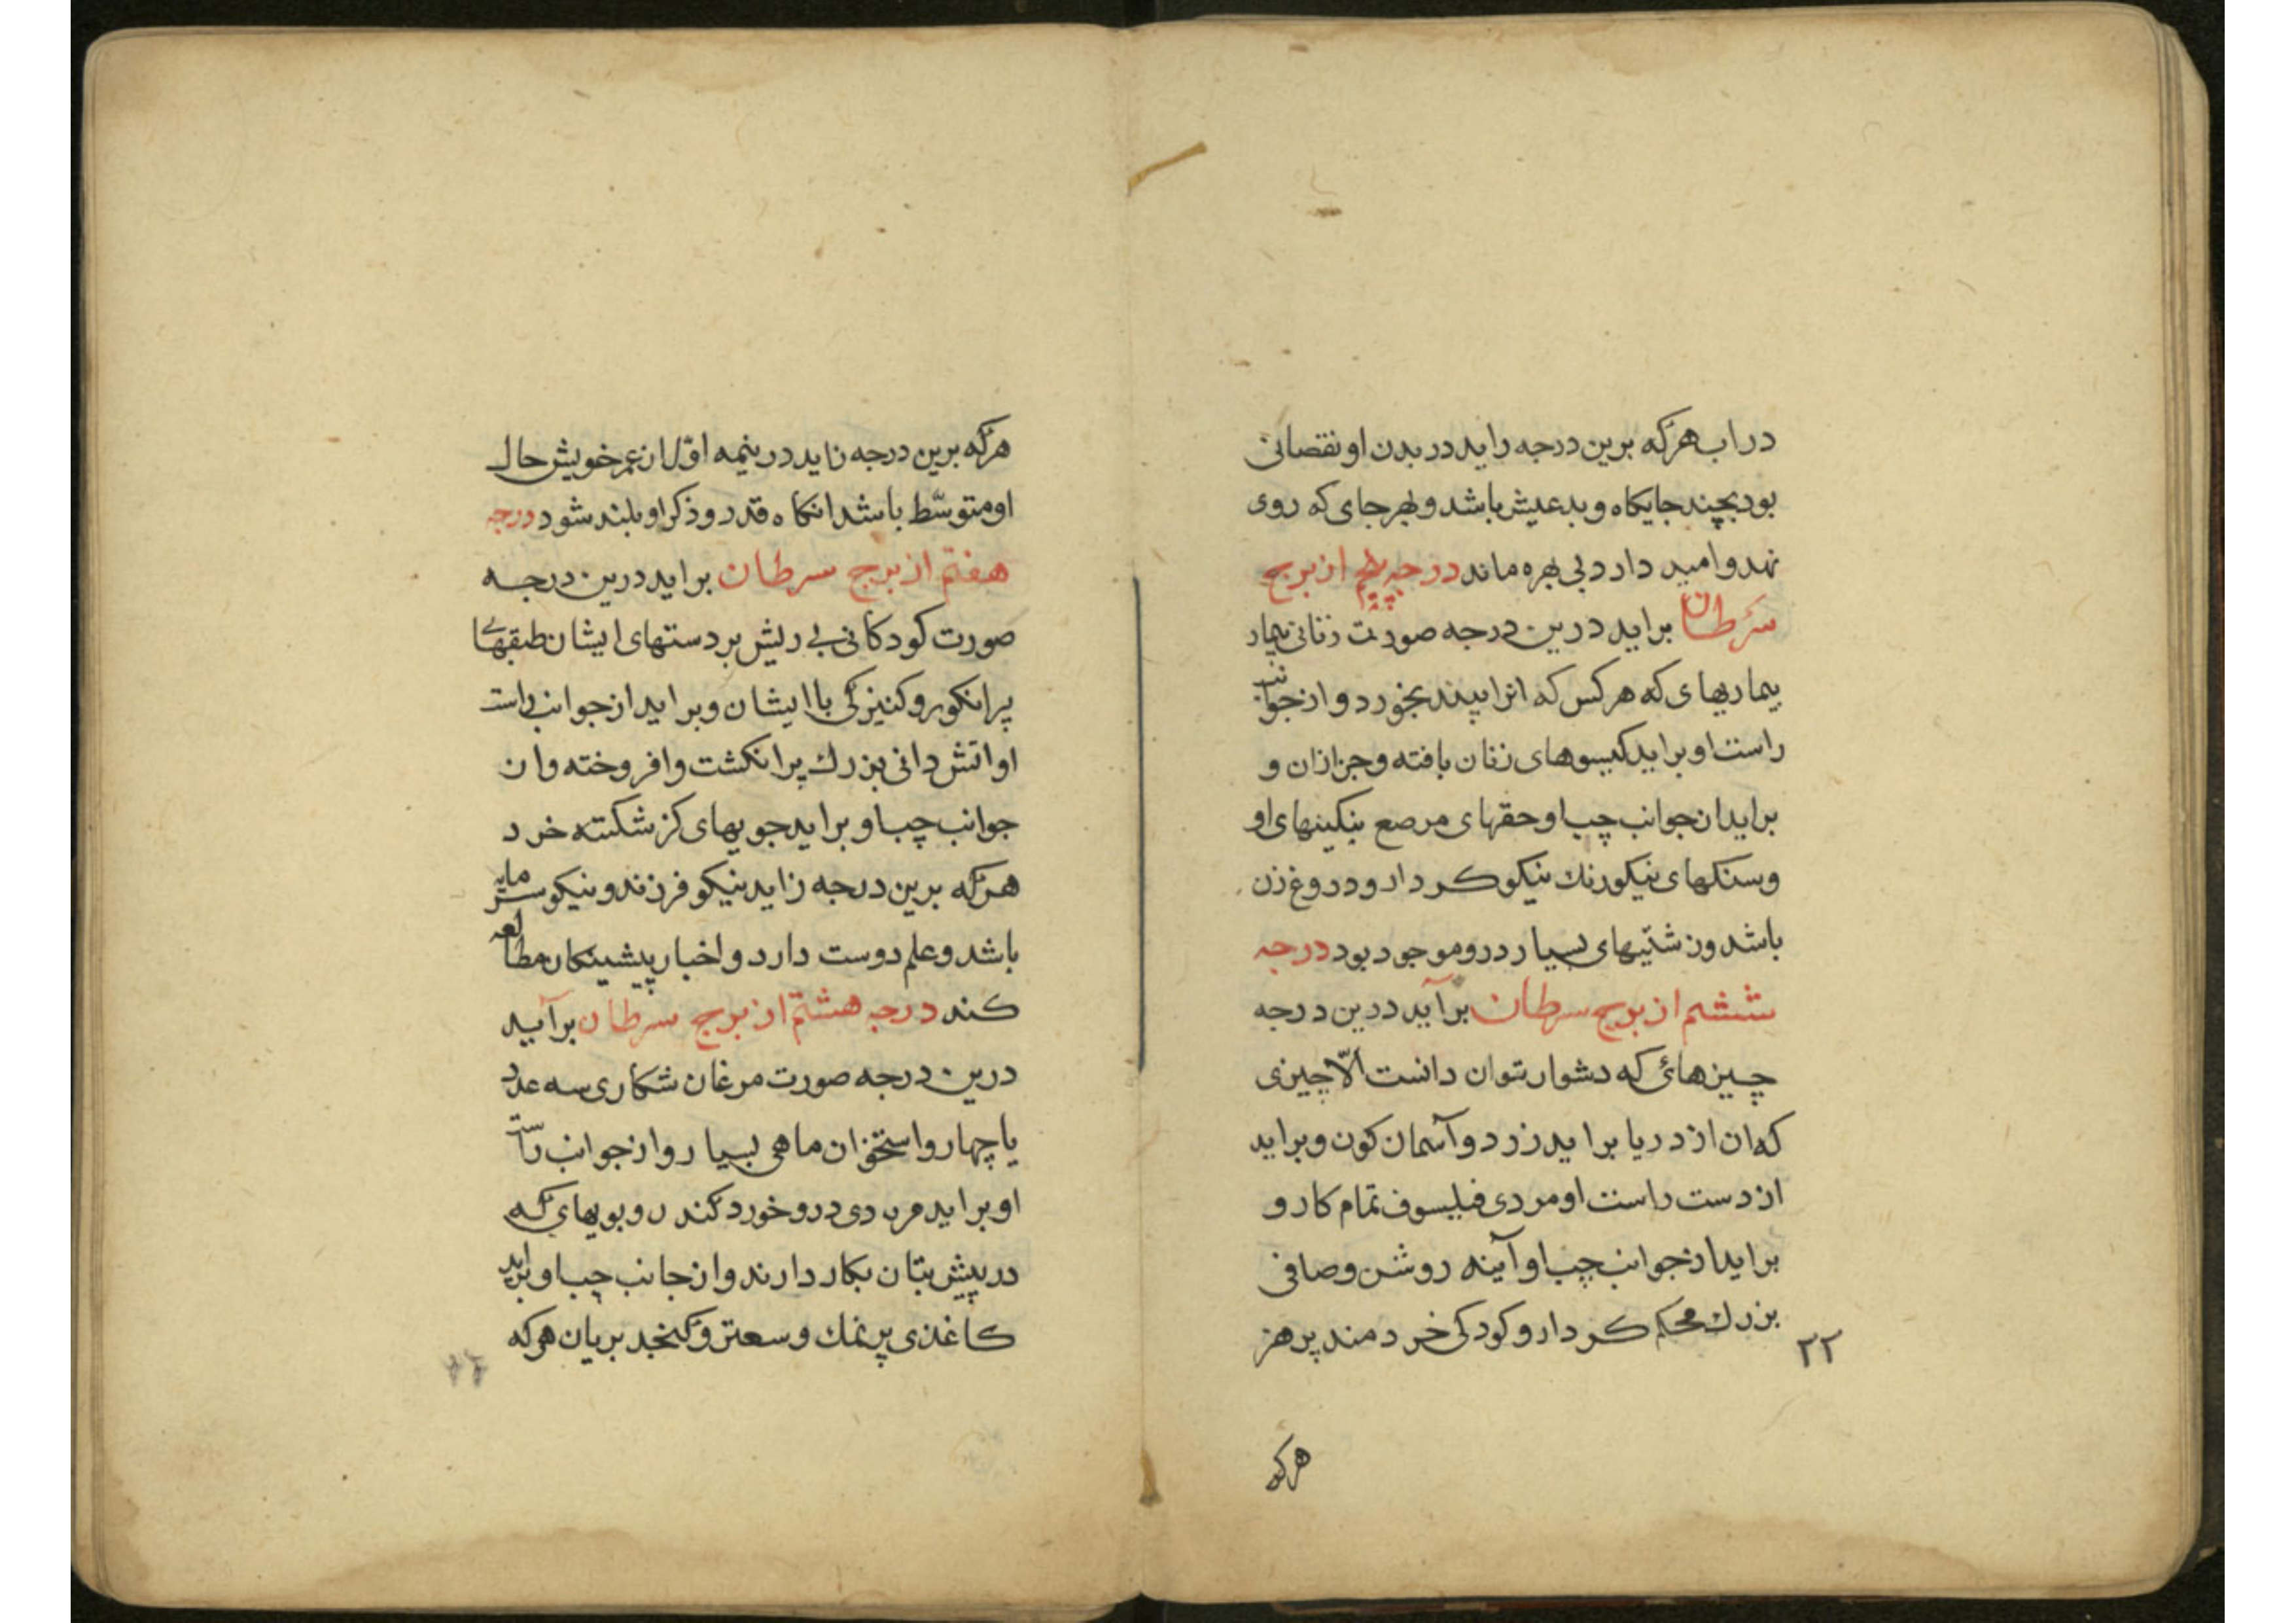 در اب هرکه برین درجه زاید در بدن او نقصانی
بود بچند جایکاه و بد عیش باشد و بهر جای که روی
نهد و امید دارد بی بهره ماند درجه پنجم از برج
سرطان براید درین درجه صورت زنانی بیمار
بیماریهای که هر کس که انرا بیند بخورد و از جوانب
راست او براید کیسوهای زنان بافته و جز ازان و
براید از جوانب چپ او حقهای مرصع بنکینهای او
و سنکهای نیکو رنك نیکو کردار و دروغ زن
باشد و زشتیهای بسیار درو موجود بود درجه
ششم از برج سرطان برآید درین درجه
چیزهائی که دشوار توان دانست الّا چیزی
که ان از دریا براید زرد و آسمان کون و براید
از دست راست او مردی فیلسوف تمام کار و
براید از جوانب چپ او آینه روشن و صافی
بزرك محکم کردار و کودکی خردمند پرهنر
۲۲
هرکه
هرکه برین درجه زاید در نیمه اوّل از عمر خویش حال
او متوسّط باشد انکاه قدر و ذکر او بلند شود درجه
هفتم از برج سرطان براید درین درجه
صورت کودکانی بی ریش بر دستهای ایشان طبقهای
پر انکور و کنیزکی با ایشان و براید از جوانب راست
او اتش دانی بزرك پر انکشت و افروخته و از
جوانب چپ او براید جویهای کژ شکسته خرد
هرکه برین درجه زاید نیکو فرزند و نیکو سرمایه
باشد و علم دوست دارد و اخبار پیشینکان مطالعه
کند درجه هشتم از برج سرطان برآید
درین درجه صورت مرغان شکاری سه عدد
یا چهار و استخوان ماهی بسیار و از جوانب راست
او براید مردی درو خورد کند و بویهای که
در پیش بتان بکار دارند و از جانب چپ او براید
کاغذی پر نمك و سعتر و کنجد بریان هرکه